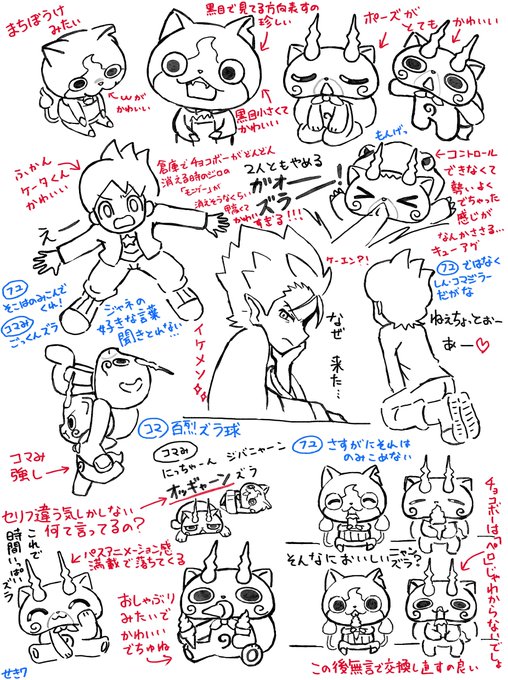 まちぼうけ
みたい
←ωが
かわいい
黒目で見てる方向表すの
珍しい
黒目小さくて
かわいい
ポーズが
とても
かわいい
もんげっ
ふかん
ケータくん
かわいい
えー
倉庫でチョコボーがどんどん
消える時のジロの
「モンバー」が
消えそうなくらい
早くて
かわいすぎる!!!
2人ともやめる
ガオー
ズラー!
←コントロール
できなくて
勢いよく
でちゃった
感じが
なんかささる…
キューアグ
フユ
そこはのみこんで
くれ!
コマみ
ごっくんズラ
ジャネの
好きな言葉
聞きとれない…
ケーエン?!
イケメソ
なぜ
来た…
フユ ではなく
しん・コマジラー
だがな
ねえちょっとおー
あー♡
コマみ
強し→
コマ 百烈ズラ球
コマみ
にっちゃーん ジバニャーン
オッギャーンズラ
セリフ違う気しかしない
何て言ってるの?
フユ さすがにそれは
のみこめない
そんなにおいしいニャン
ズラ?
チョコボーは「ペロ」じゃわからないでしょ
この後無言で交換し直すの良い
これで
時間いっぱい
ズラ
パスアニメーション感
満載で落ちてくる
おしゃぶり
みたいで
かわいい
でちゅね
せき7